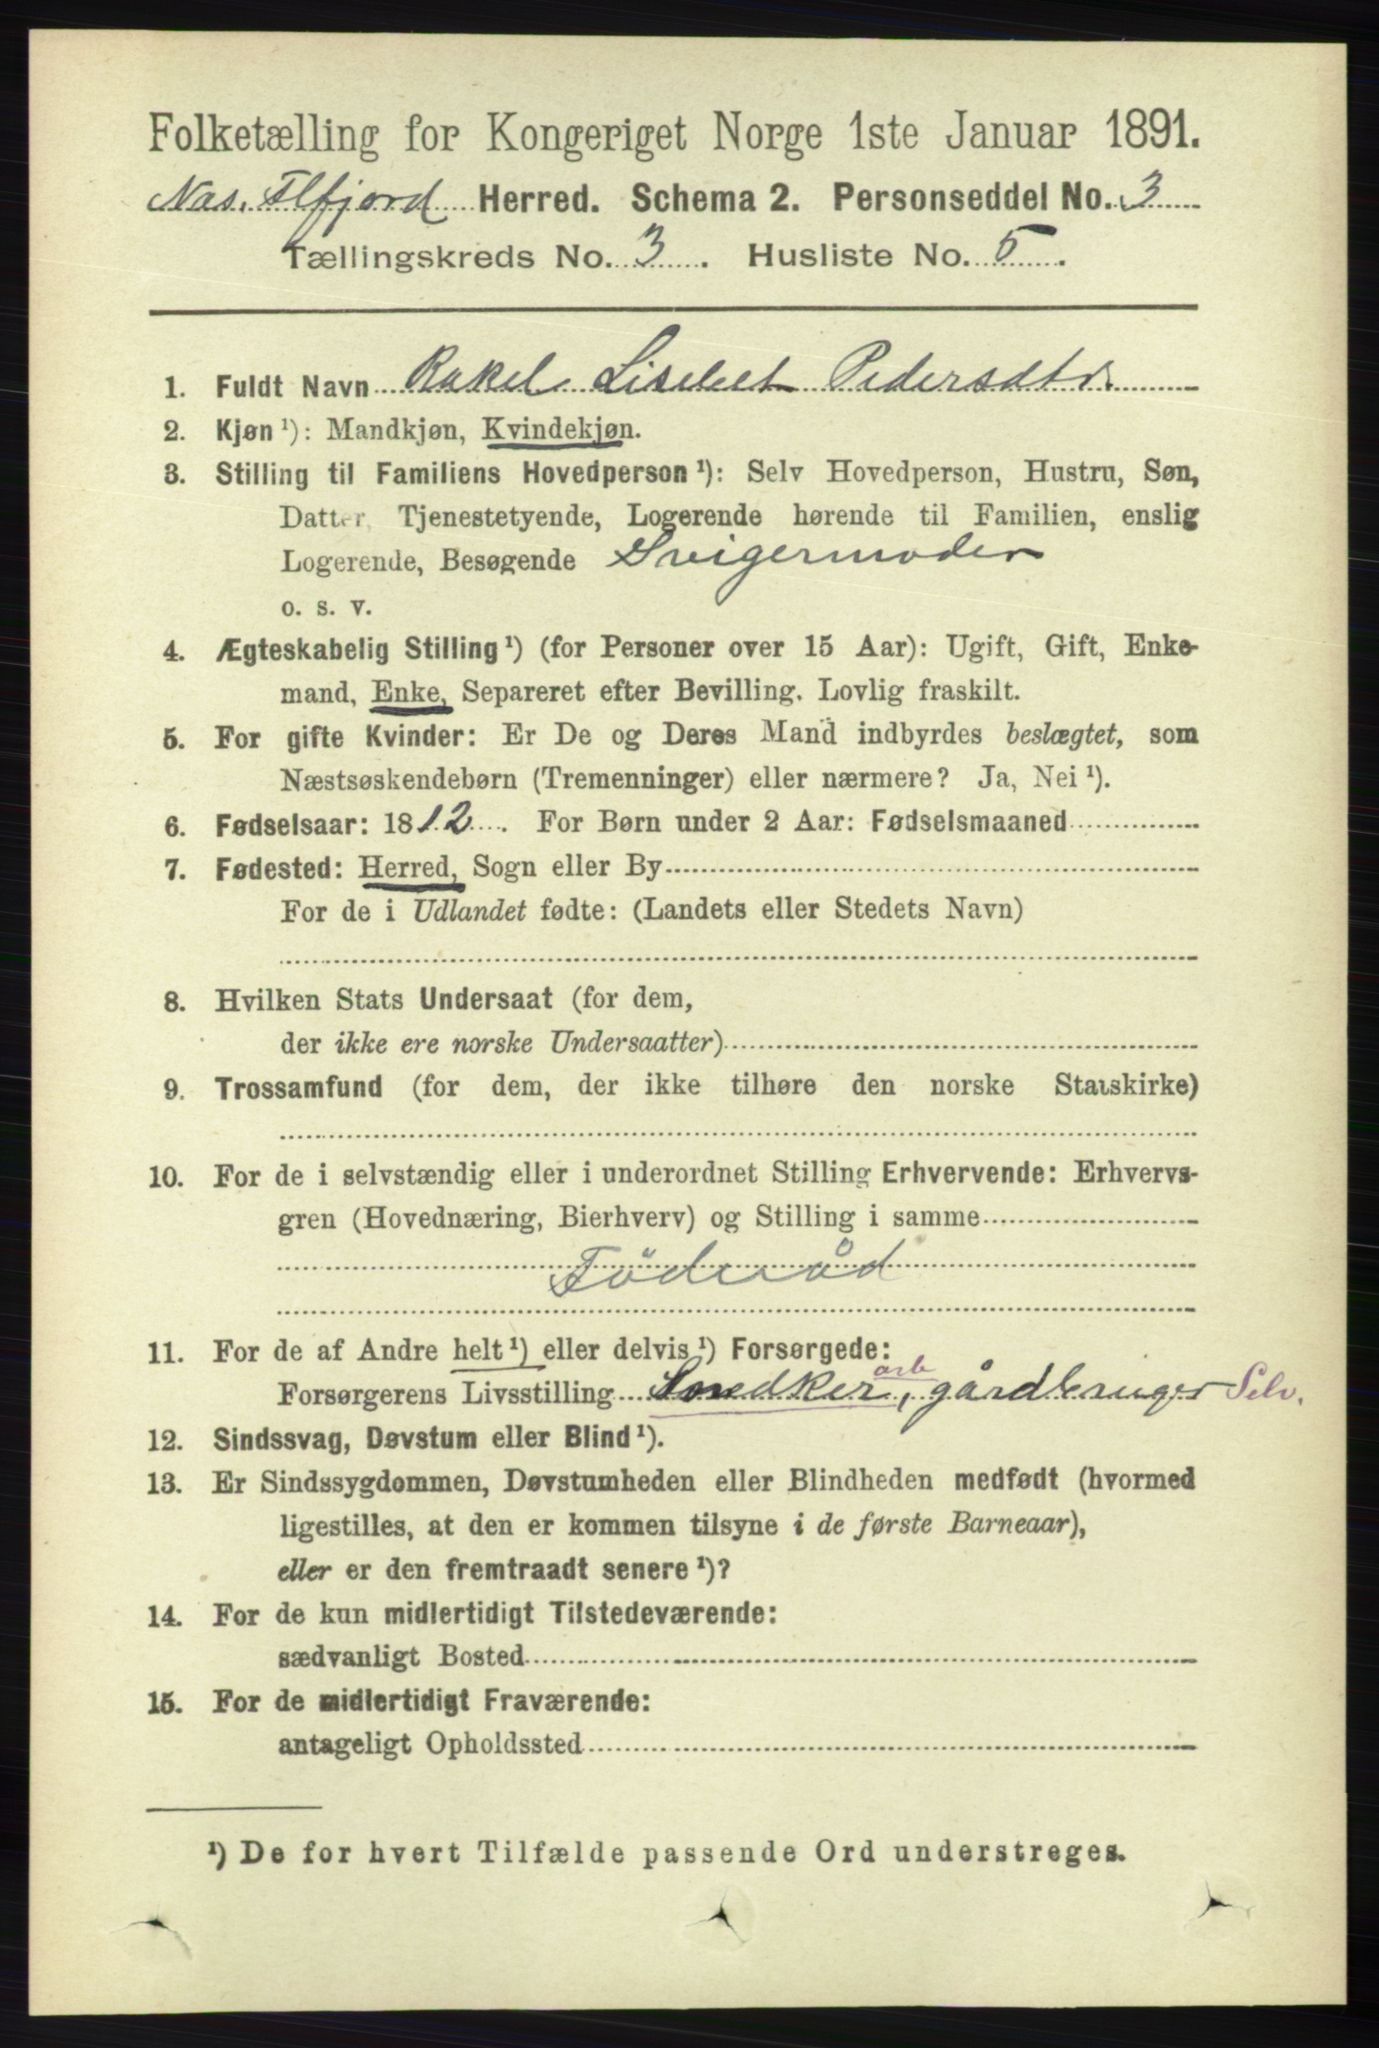 Folketælling for Kongeriget Norge 1ste Januar 1891.
Nas. Flfjord Herred. Schema 2. Personseddel No. 3
Tællingskreds No. 3. Husliste No. 5.
1. Fuldt Navn Rakel Lisebet Pedersdtr.
2. Kjøn ¹): Mandkjøn, Kvindekjøn.
3. Stilling til Familiens Hovedperson ¹): Selv Hovedperson, Hustru, Søn,
Datter, Tjenestetyende, Logerende hørende til Familien, enslig
Logerende, Besøgende Svigermoder
o. s. v.
4. Ægteskabelig Stilling ¹) (for Personer over 15 Aar): Ugift, Gift, Enke-
mand, Enke, Separeret efter Bevilling. Lovlig fraskilt.
5. For gifte Kvinder: Er De og Deres Mand indbyrdes beslægtet, som
Næstsøskendebørn (Tremenninger) eller nærmere? Ja, Nei ¹).
6. Fødselsaar: 1812. For Børn under 2 Aar: Fødselsmaaned
7. Fødested: Herred, Sogn eller By
For de i Udlandet fødte: (Landets eller Stedets Navn)
8. Hvilken Stats Undersaat (for dem,
der ikke ere norske Undersaatter)
9. Trossamfund (for dem, der ikke tilhøre den norske Statskirke)
10. For de i selvstændig eller i underordnet Stilling Erhvervende: Erhvervs-
gren (Hovednæring, Bierhverv) og Stilling i samme
Föderåd
11. For de af Andre helt ¹) eller delvis ¹) Forsørgede:
arb
Forsørgerens Livsstilling Snedker, gårdbruger Selv.
12. Sindssvag, Døvstum eller Blind ¹).
13. Er Sindssygdommen, Døvstumheden eller Blindheden medfødt (hvormed
ligestilles, at den er kommen tilsyne i de første Barneaar),
eller er den fremtraadt senere ¹)?
14. For de kun midlertidigt Tilstedeværende:
sædvanligt Bosted
15. For de midlertidigt Fraværende:
antageligt Opholdssted
¹) De for hvert Tilfælde passende Ord understreges.